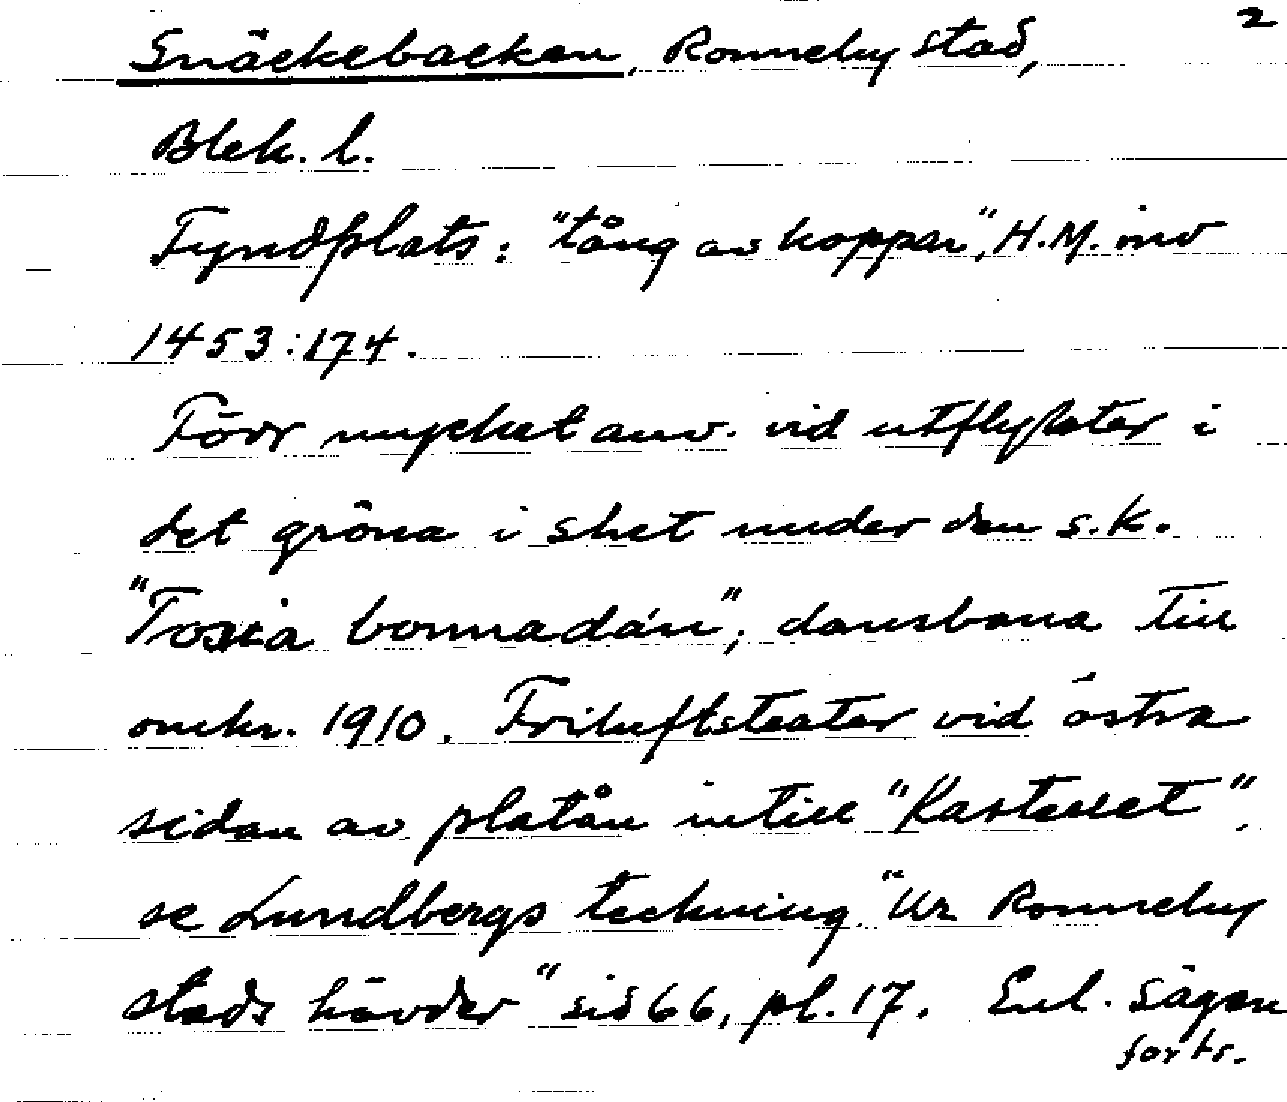 2
Snäckebacken, Ronneby stad,
Blek. l.
Fyndplats: "tång av koppar", H.M. inv
1453:174.
Förr mycket anv. vid utflykter i
det gröna i sket under den s.k.
"Tosia bonnadån", dansbana till
omkr. 1910. Friluftsteater vid östra
sidan av platån intill "Kastellet".
se Lundbergs teckning "Ur Ronneby
stads hävder" sid 66, pl. 17. Enl. sägen
forts.